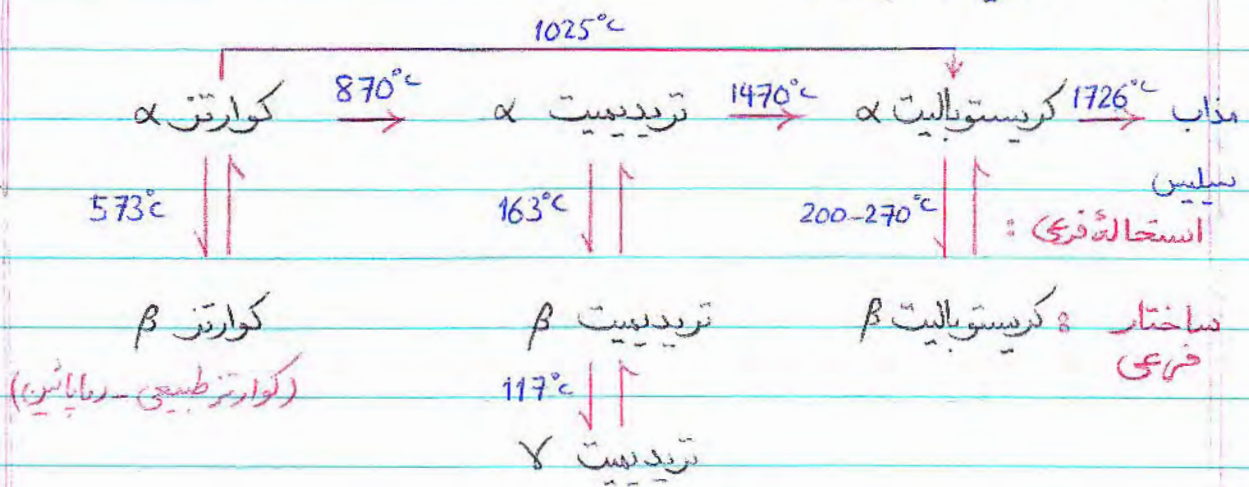 1025°c
کوارتز α 870°c تریدیمیت α 1470°c کریستوبالیت α 1726°c مذاب
سیلیس
573°c 163°c 200-270°c استحالهٔ فرعی :
کوارتز β تریدیمیت β کریستوبالیت β : ساختار
فرعی
(کوارتز طبیعی - دما پائین) 117°c
تریدیمیت γ